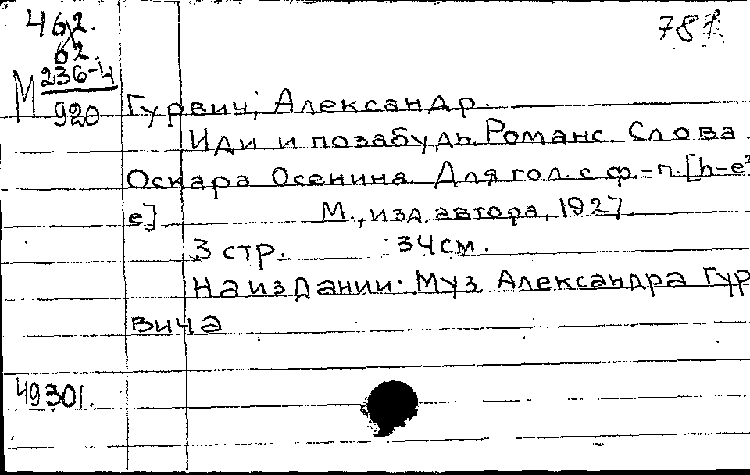 462.
62
М 236-4
920
787
Гурвич, Александр.
Иди и позабудь. Романс. Слова
Оскара Осенина. Для гол. с ф.-п. [h-e²
e] М., изд. автора, 1927
3 стр. 34 см.
На издании: Муз. Александра Гур
вича
49301.